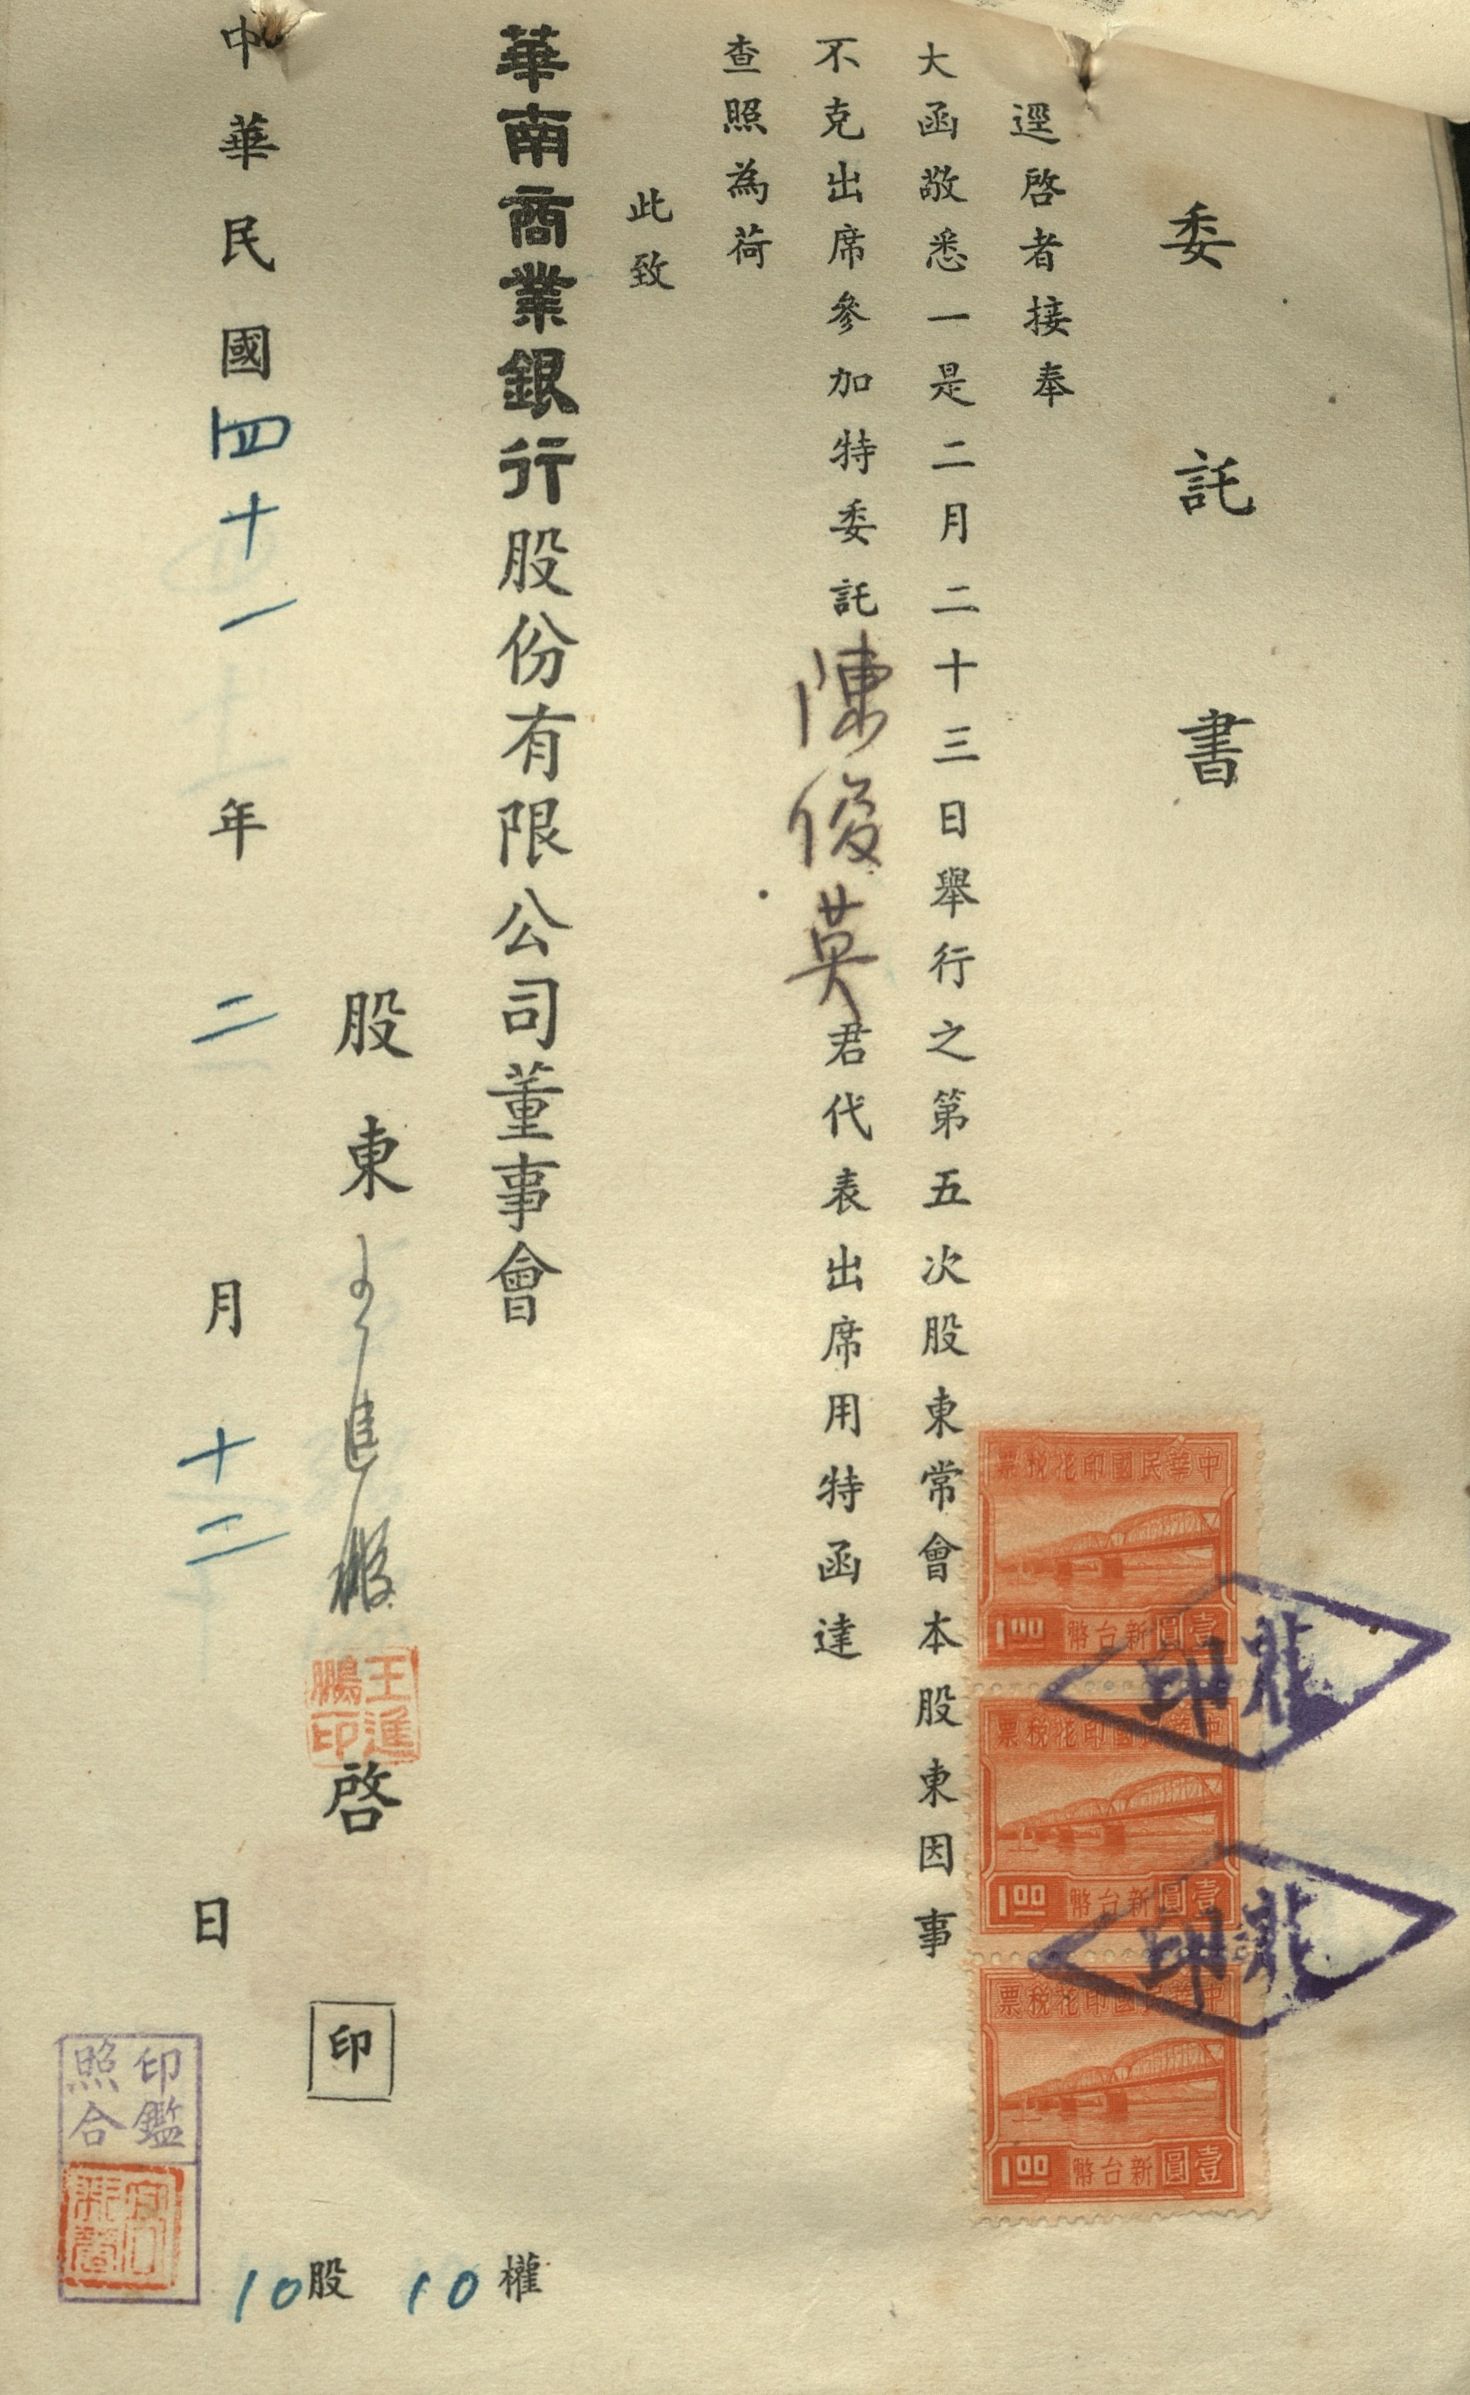 委託書
逕啓者接奉
大函敬悉一是二月二十三日舉行之第五次股東常會本股東因事
不克出席參加特委託陳俊英君代表出席用特函達
查照為荷
此致
華南商業銀行股份有限公司董事會
股東王進鵬啓 印
王進鵬印
中華民國四十一年二月十二日
10股 10權
印鑑照合
中華民國印花稅票
壹圓新台幣 1.00
中華民國印花稅票
壹圓新台幣 1.00
中華民國印花稅票
壹圓新台幣 1.00